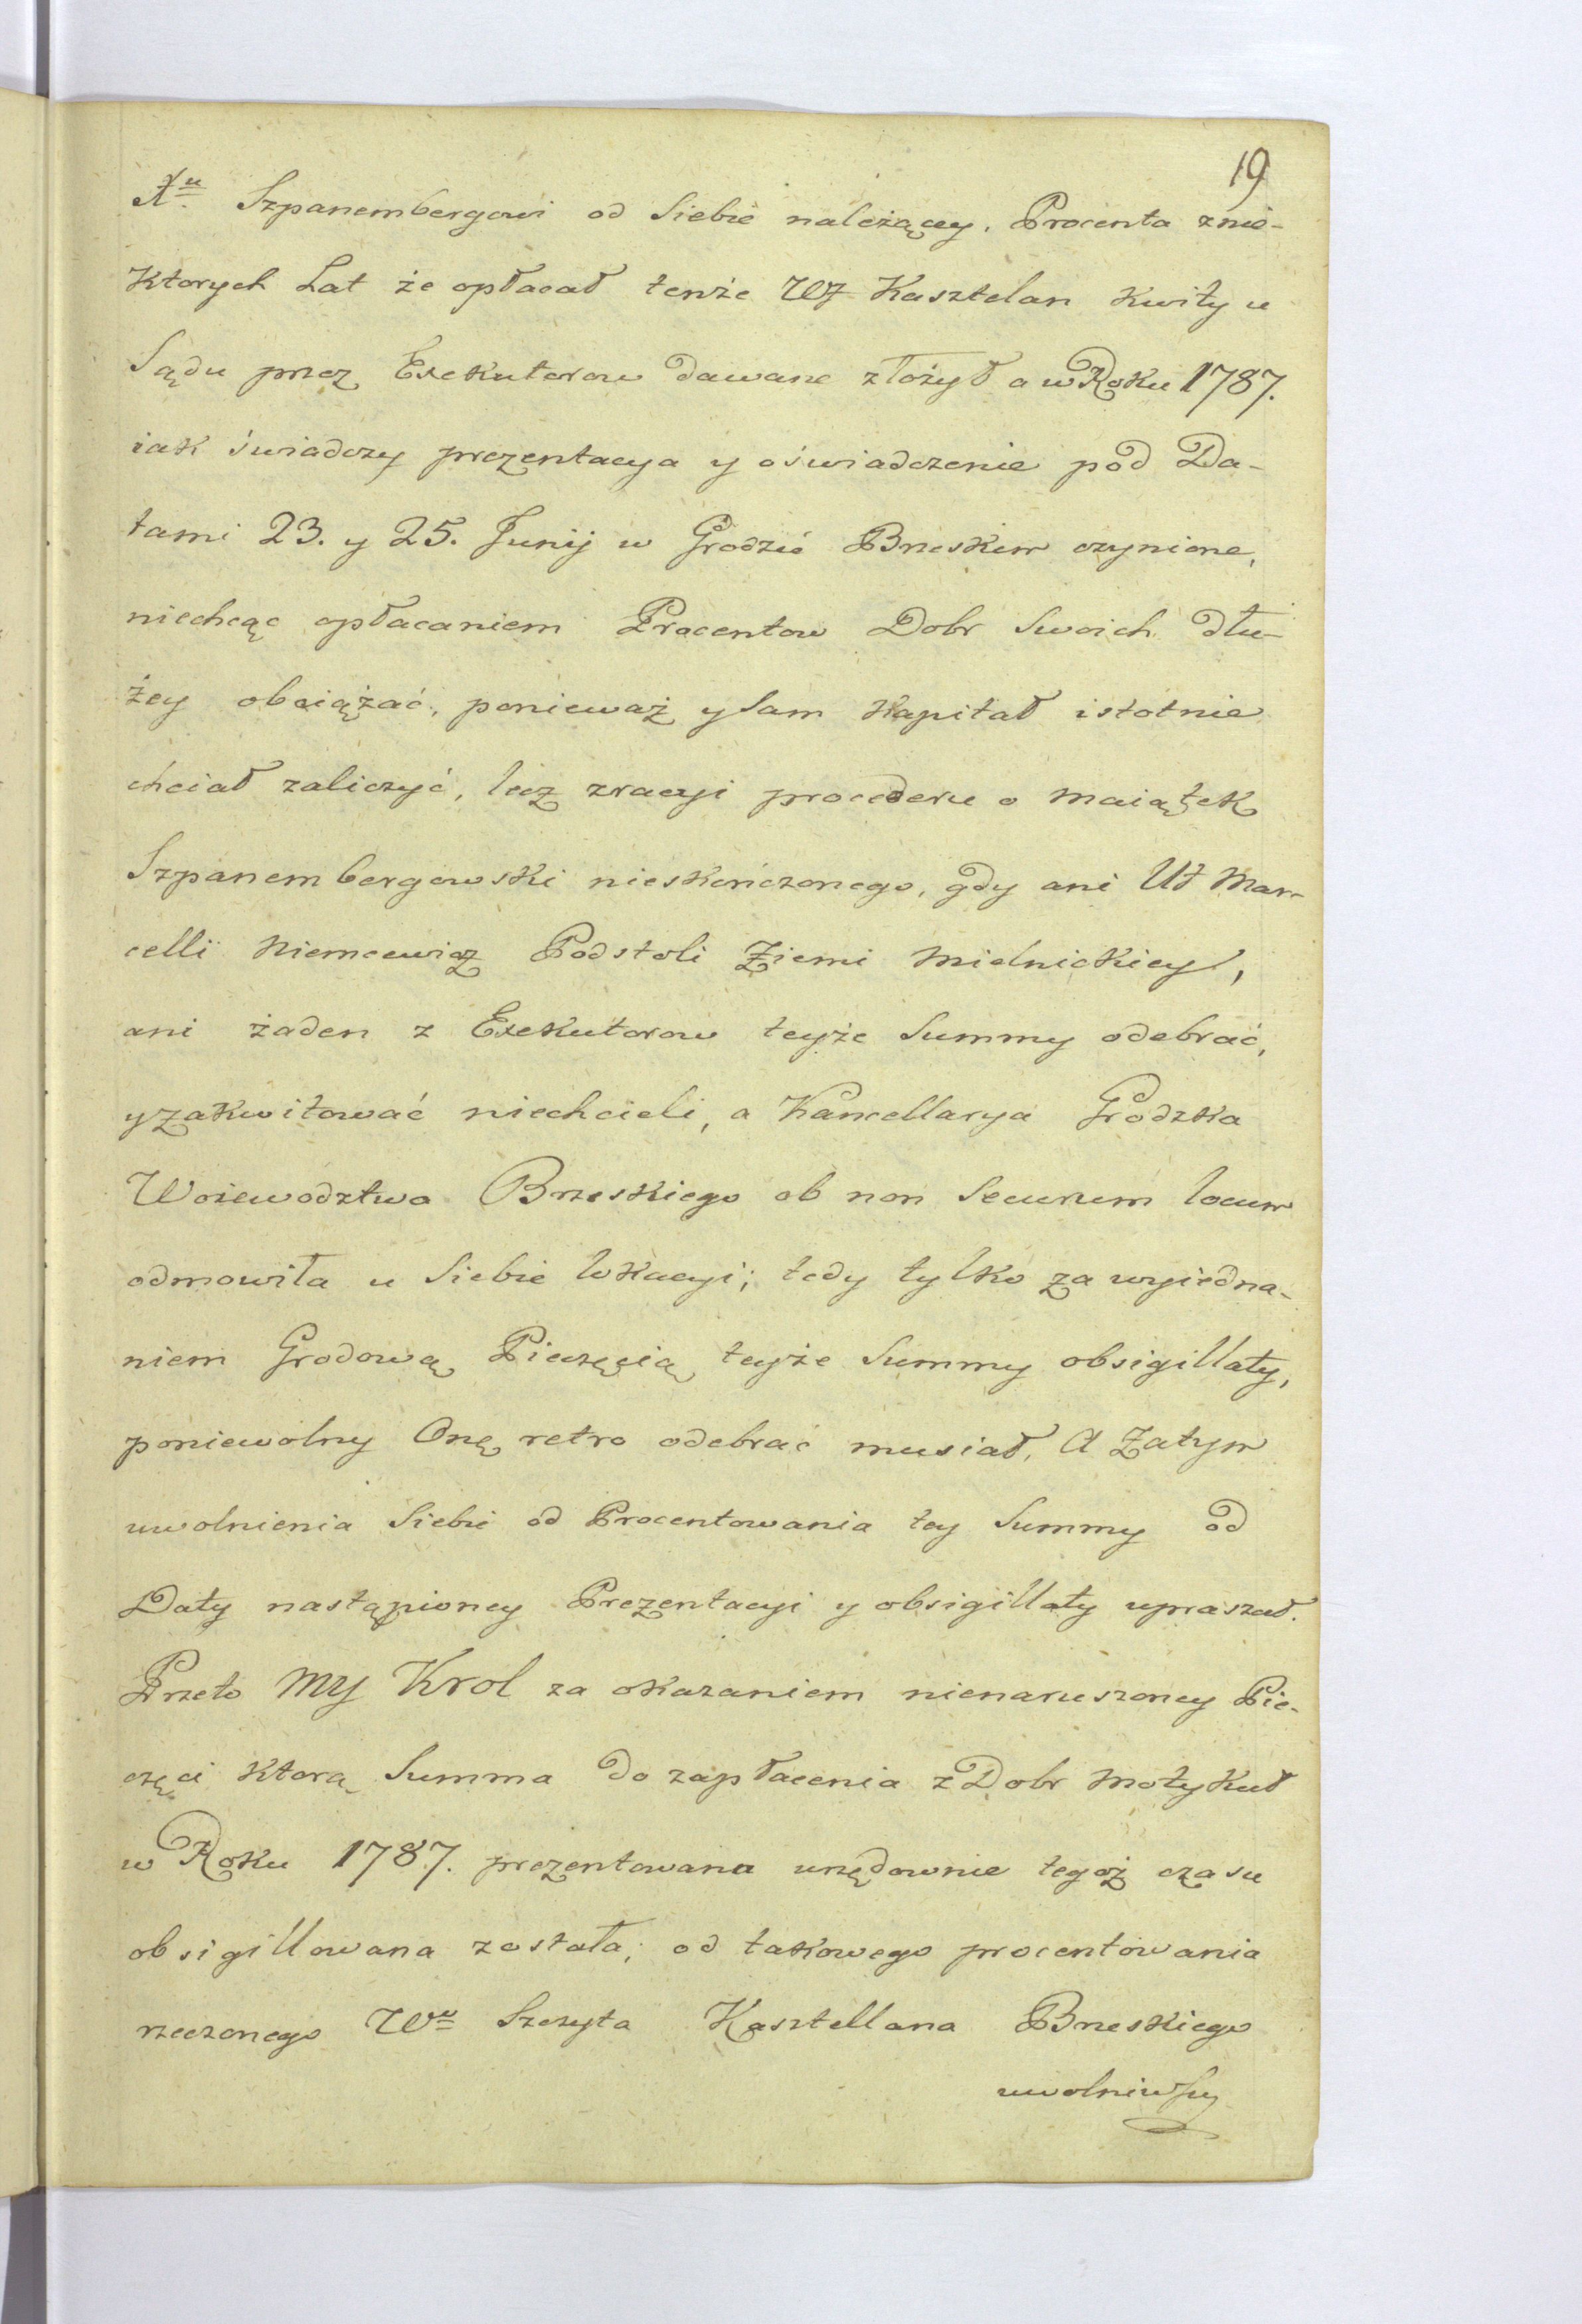 19
Xu Szpanembergowi od Siebie należącey. Procenta znie-
ktorych Lat że opłacał tenże WJ Kasztelan kwity u
Sądu przez Exekutorow dawane złożył a w Roku 1787.
iak świadczy prezentacya y oświadczenie pod Da-
tami 23. y 25. Junij w Grodzie Brzeskim czynione,
niechcąc opłacaniem Procentow Dobr Swoich dłu-
żey obciążać, ponieważ y Sam Kapitał istotnie
chciał zaliczyć, lecz zracyi procederu o maiątek
Szpanembergowski nieskończonego, gdy ani UJ Mar-
celli Niemcewicz Podstoli Ziemi Mielnickiey,
ani żaden z Exekutorow teyże Summy odebrać,
y zakwitować niechcieli, a Kancellarya Grodzka
Woiewodztwa Brzeskiego ob non Securum locum
odmowiła u Siebie lokacyi; tedy tylko za wyiedna-
niem Grodową Pieczęcią teyże Summy obsigillaty,
poniewolny Onę retro odebrać musiał. A Zatym
uwolnienia Siebie od Procentowania tey Summy od
Daty nastąpioney Prezentacyi y obsigillaty upraszał.
Przeto MY Krol za okazaniem nienaruszoney Pie-
częci ktorą Summa do zapłacenia z Dobr Motykał
w Roku 1787. prezentowana urzędownie tegoż czasu
obsigillowana została; od takowego procentowania
rzeczonego Wu Szczyta Kasztellana Brzeskiego
uwolniwszy